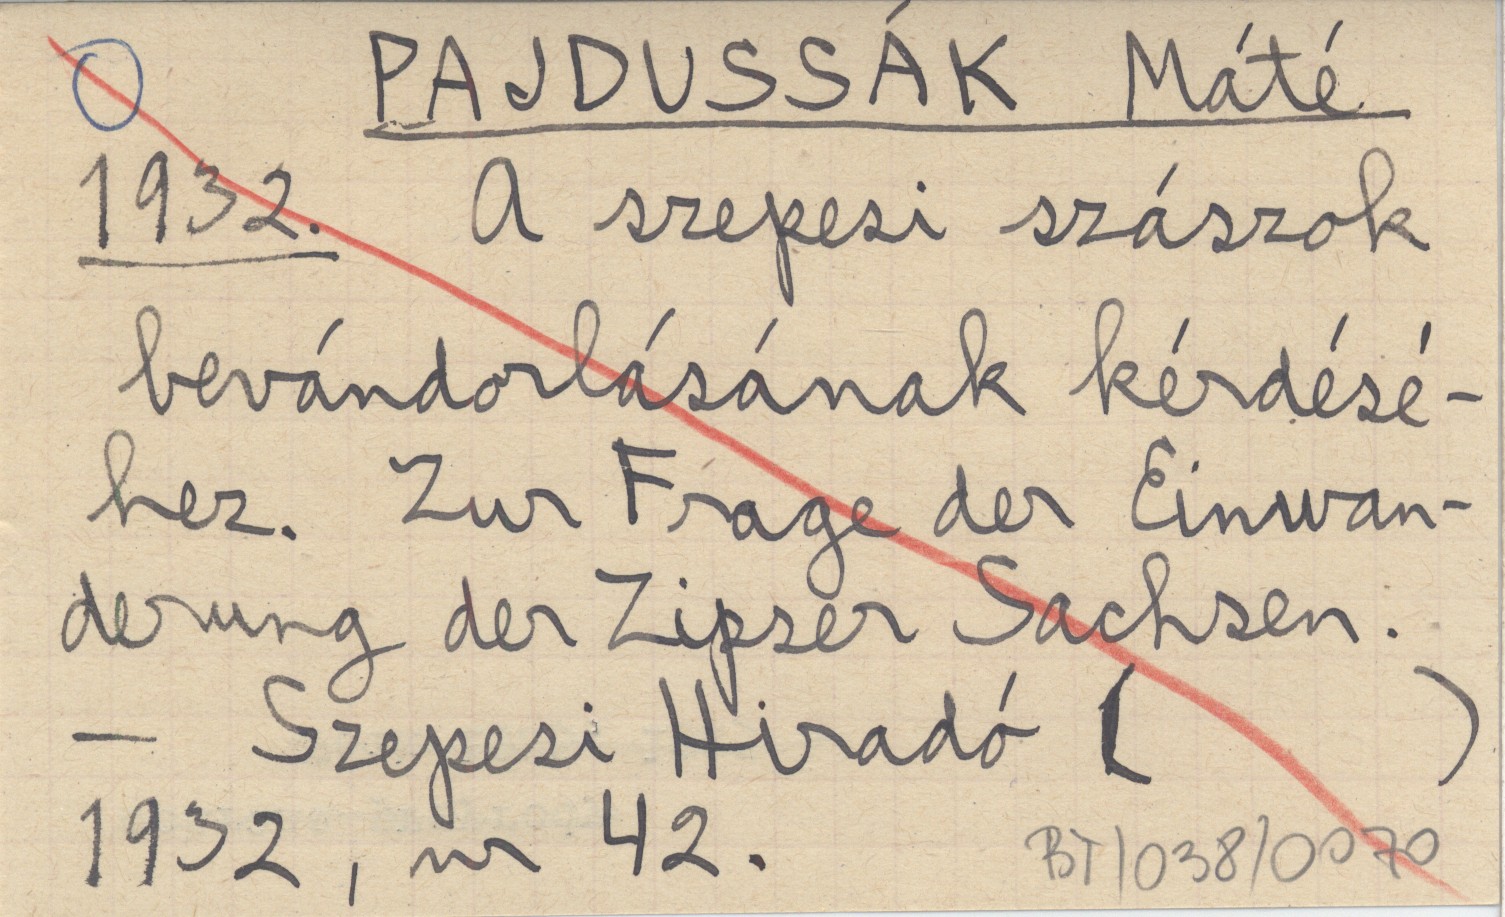 PAJDUSSÁK Máté
1932. A szepesi szászok
bevándorlásának kérdésé-
hez. Zur Frage der Einwan-
derung der Zipser Sachsen.
— Szepesi Hiradó ( )
1932, nr 42.
BT/038/0070